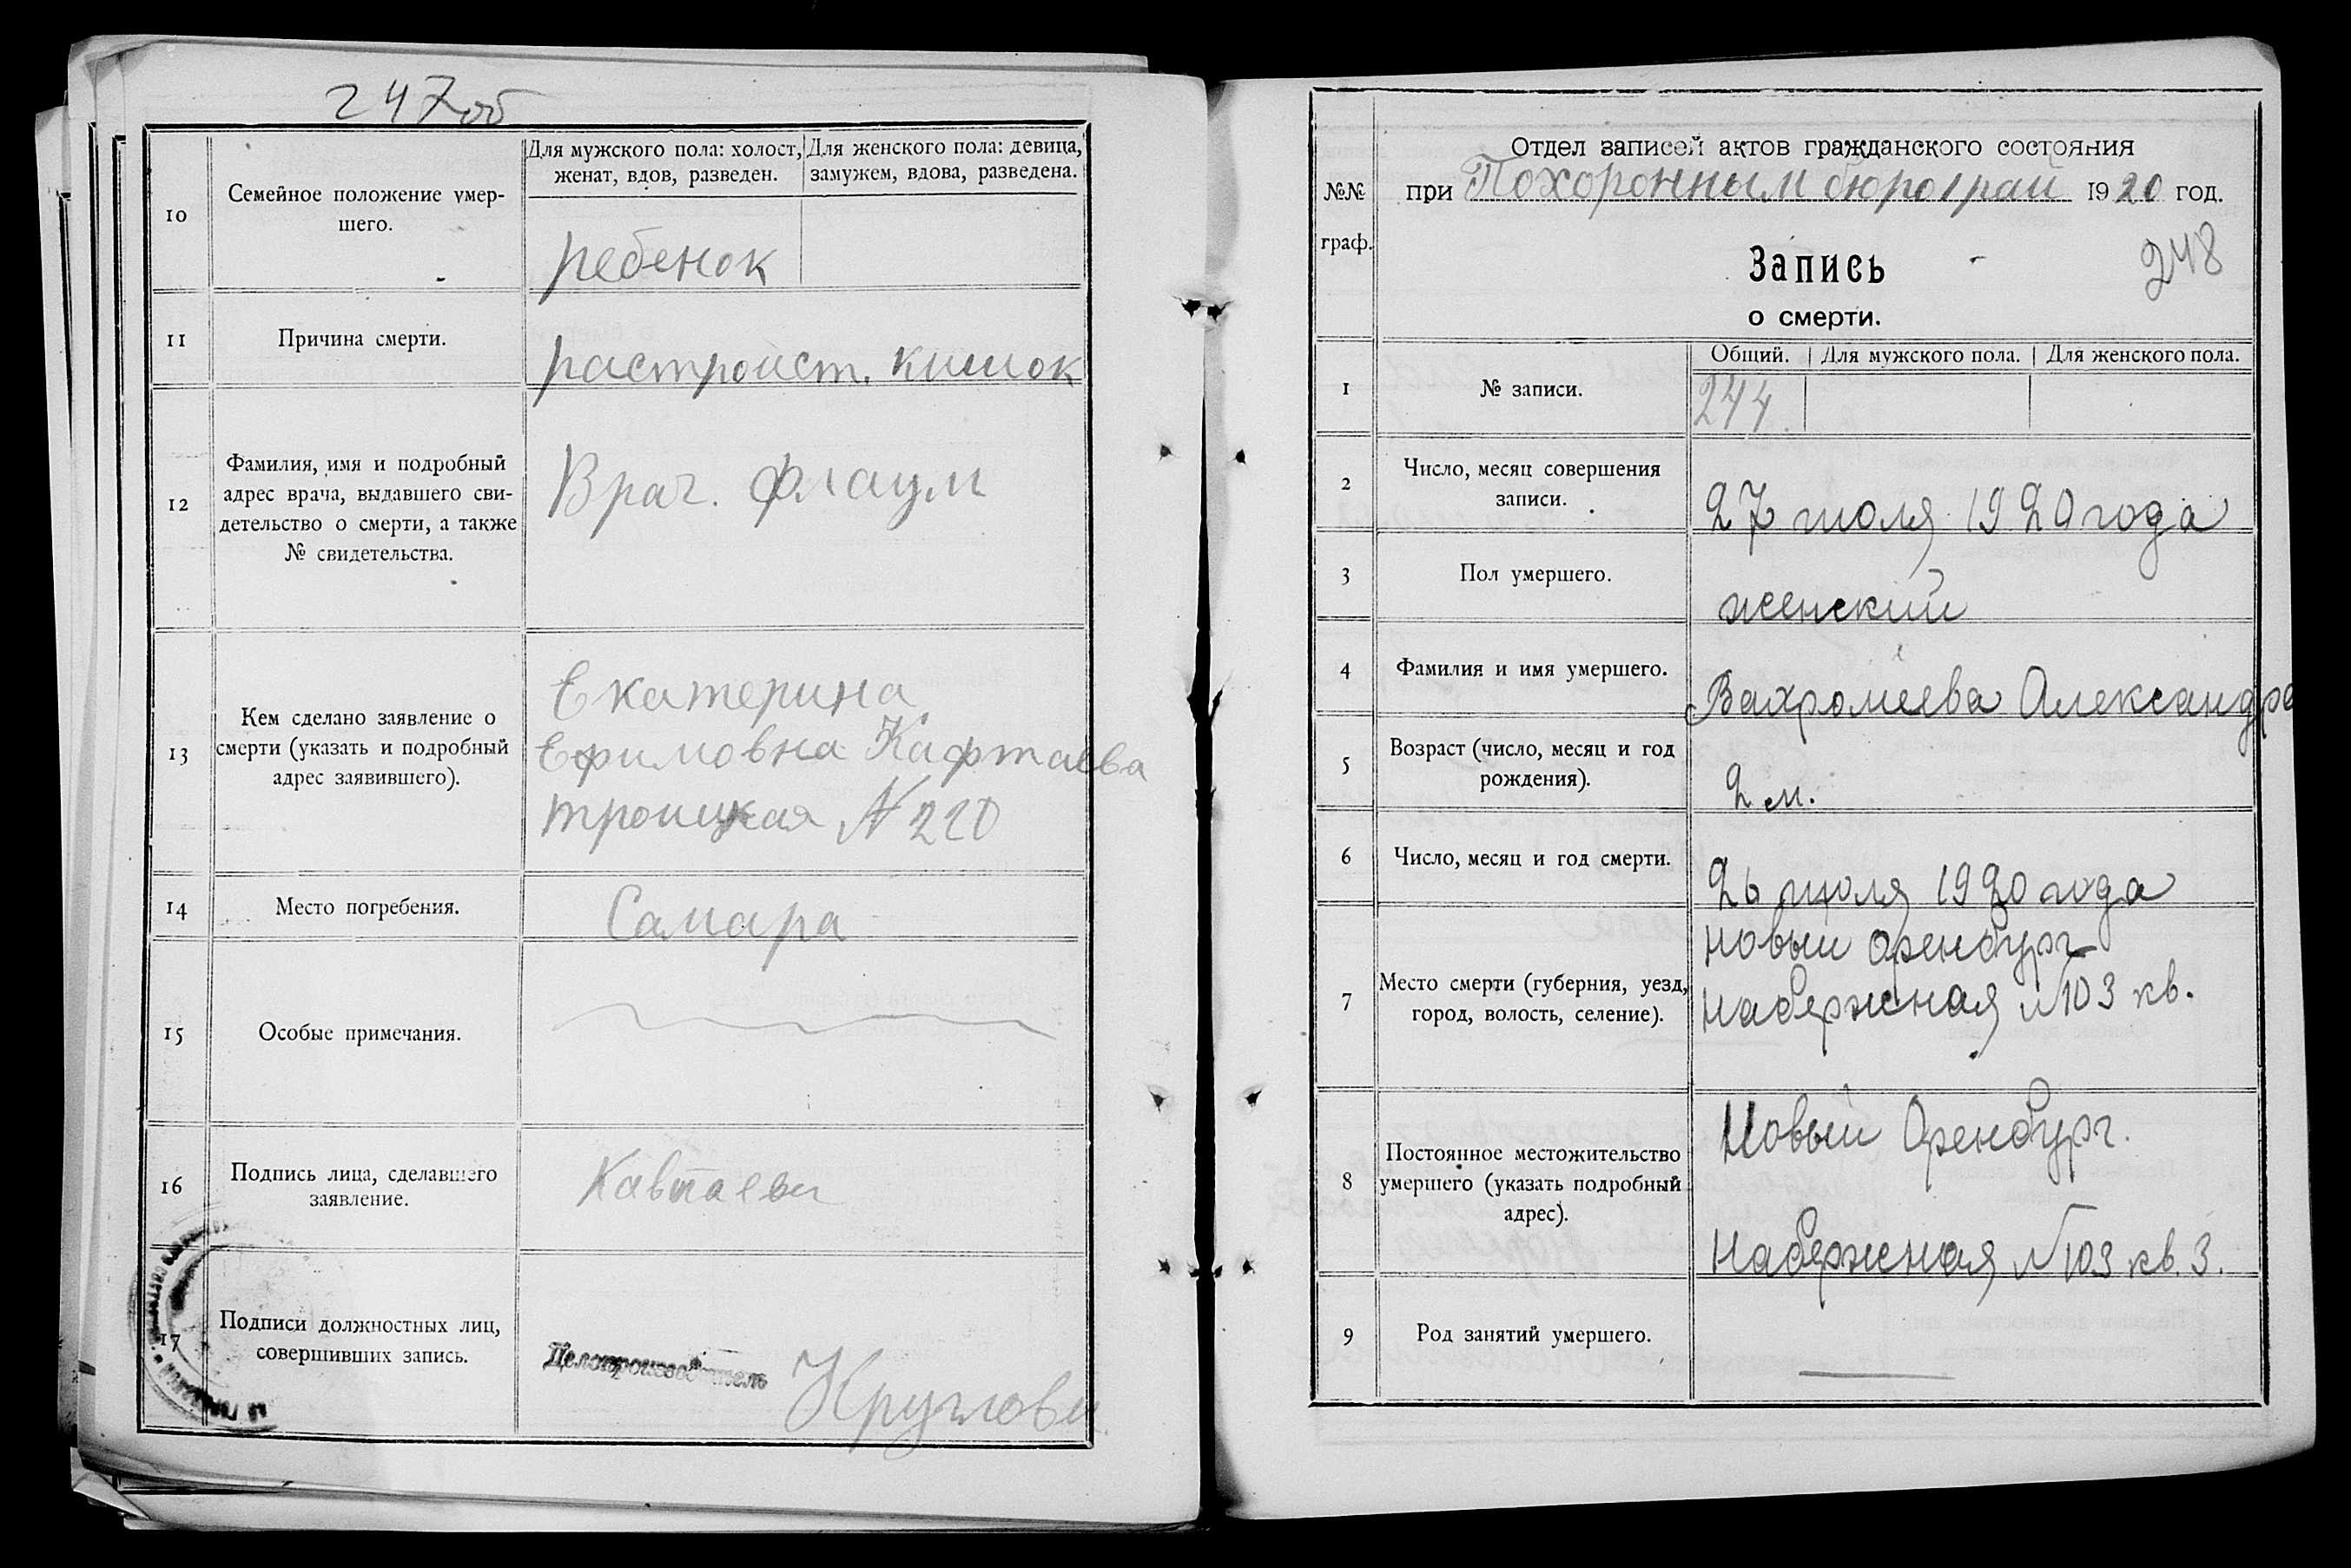 247об
10
Семейное положение умер-
шего.
Для мужского пола: холост,
женат, вдов, разведен.
Для женского пола: девица,
замужем, вдова, разведена.
ребенок
11
Причина смерти.
растроист. кишок
12
Фамилия, имя и подробный
адрес врача, выдавшего сви-
детельство о смерти, а также
№ свидетельства.
Врач. Флаум
13
Кем сделано заявление о
смерти (указать и подробный
адрес заявившего).
Екатерина
Ефимовна Кафтаева
троицкая № 210
14
Место погребения.
Самара
15
Особые примечания.
16
Подпись лица, сделавшего
заявление.
Кавтаева
17
Подписи должностных лиц,
совершивших запись.
Делопроизводитель
Круглова
№№
граф.
Отдел записей актов гражданского состояния
при Похоронным бюро 1 рай 1920 год.
Запись
248
о смерти.
1
№ записи.
Общий.
Для мужского пола.
Для женского пола.
244
2
Число, месяц совершения
записи.
27 июля 1920 года
3
Пол умершего.
женский
4
Фамилия и имя умершего.
Вахромеева Александра
5
Возраст (число, месяц и год
рождения).
2 м.
6
Число, месяц и год смерти.
26 июля 1920 года
7
Место смерти (губерния, уезд,
город, волость, селение).
новый оренбург
набережная №103 кв.
8
Постоянное местожительство
умершего (указать подробный
адрес).
Новый Оренбург.
Набережная №103 кв. 3.
9
Род занятий умершего.